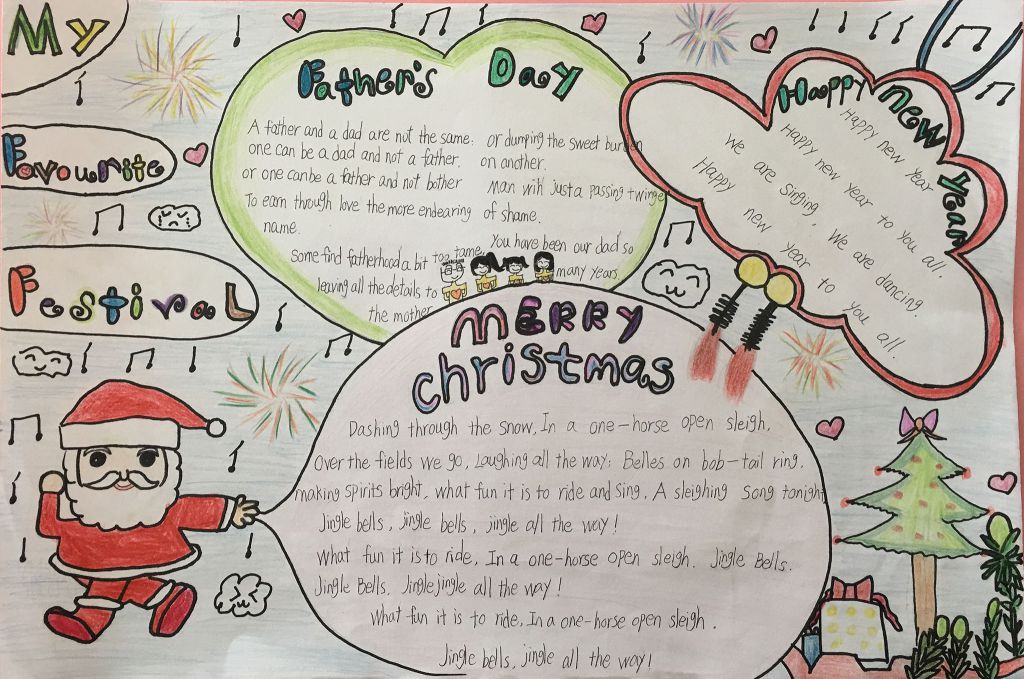 My
Favourite
Festival
Father's Day
A father and a dad are not the same:
one can be a dad and not a father.
or one can be a father and not bother
To earn through love the more endearing
name.
Some find fatherhood a bit too tame
leaving all the details to
the mother
or dumping the sweet burden
on another.
Man with just a passing twinge
of shame.
You have been our dad so
many years
Happy new year
Happy new year
Happy new year to you all.
We are singing. We are dancing.
Happy new year to you all.
MERRY
christmas
Dashing through the snow, In a one-horse open sleigh,
Over the fields we go, Laughing all the way; Belles on bob-tail ring,
making spirits bright, what fun it is to ride and sing, A sleighing song tonight
Jingle bells, jingle bells, jingle all the way!
What fun it is to ride, In a one-horse open sleigh. Jingle Bells.
Jingle Bells, Jingle jingle all the way!
What fun it is to ride, In a one-horse open sleigh.
Jingle bells, jingle all the way!